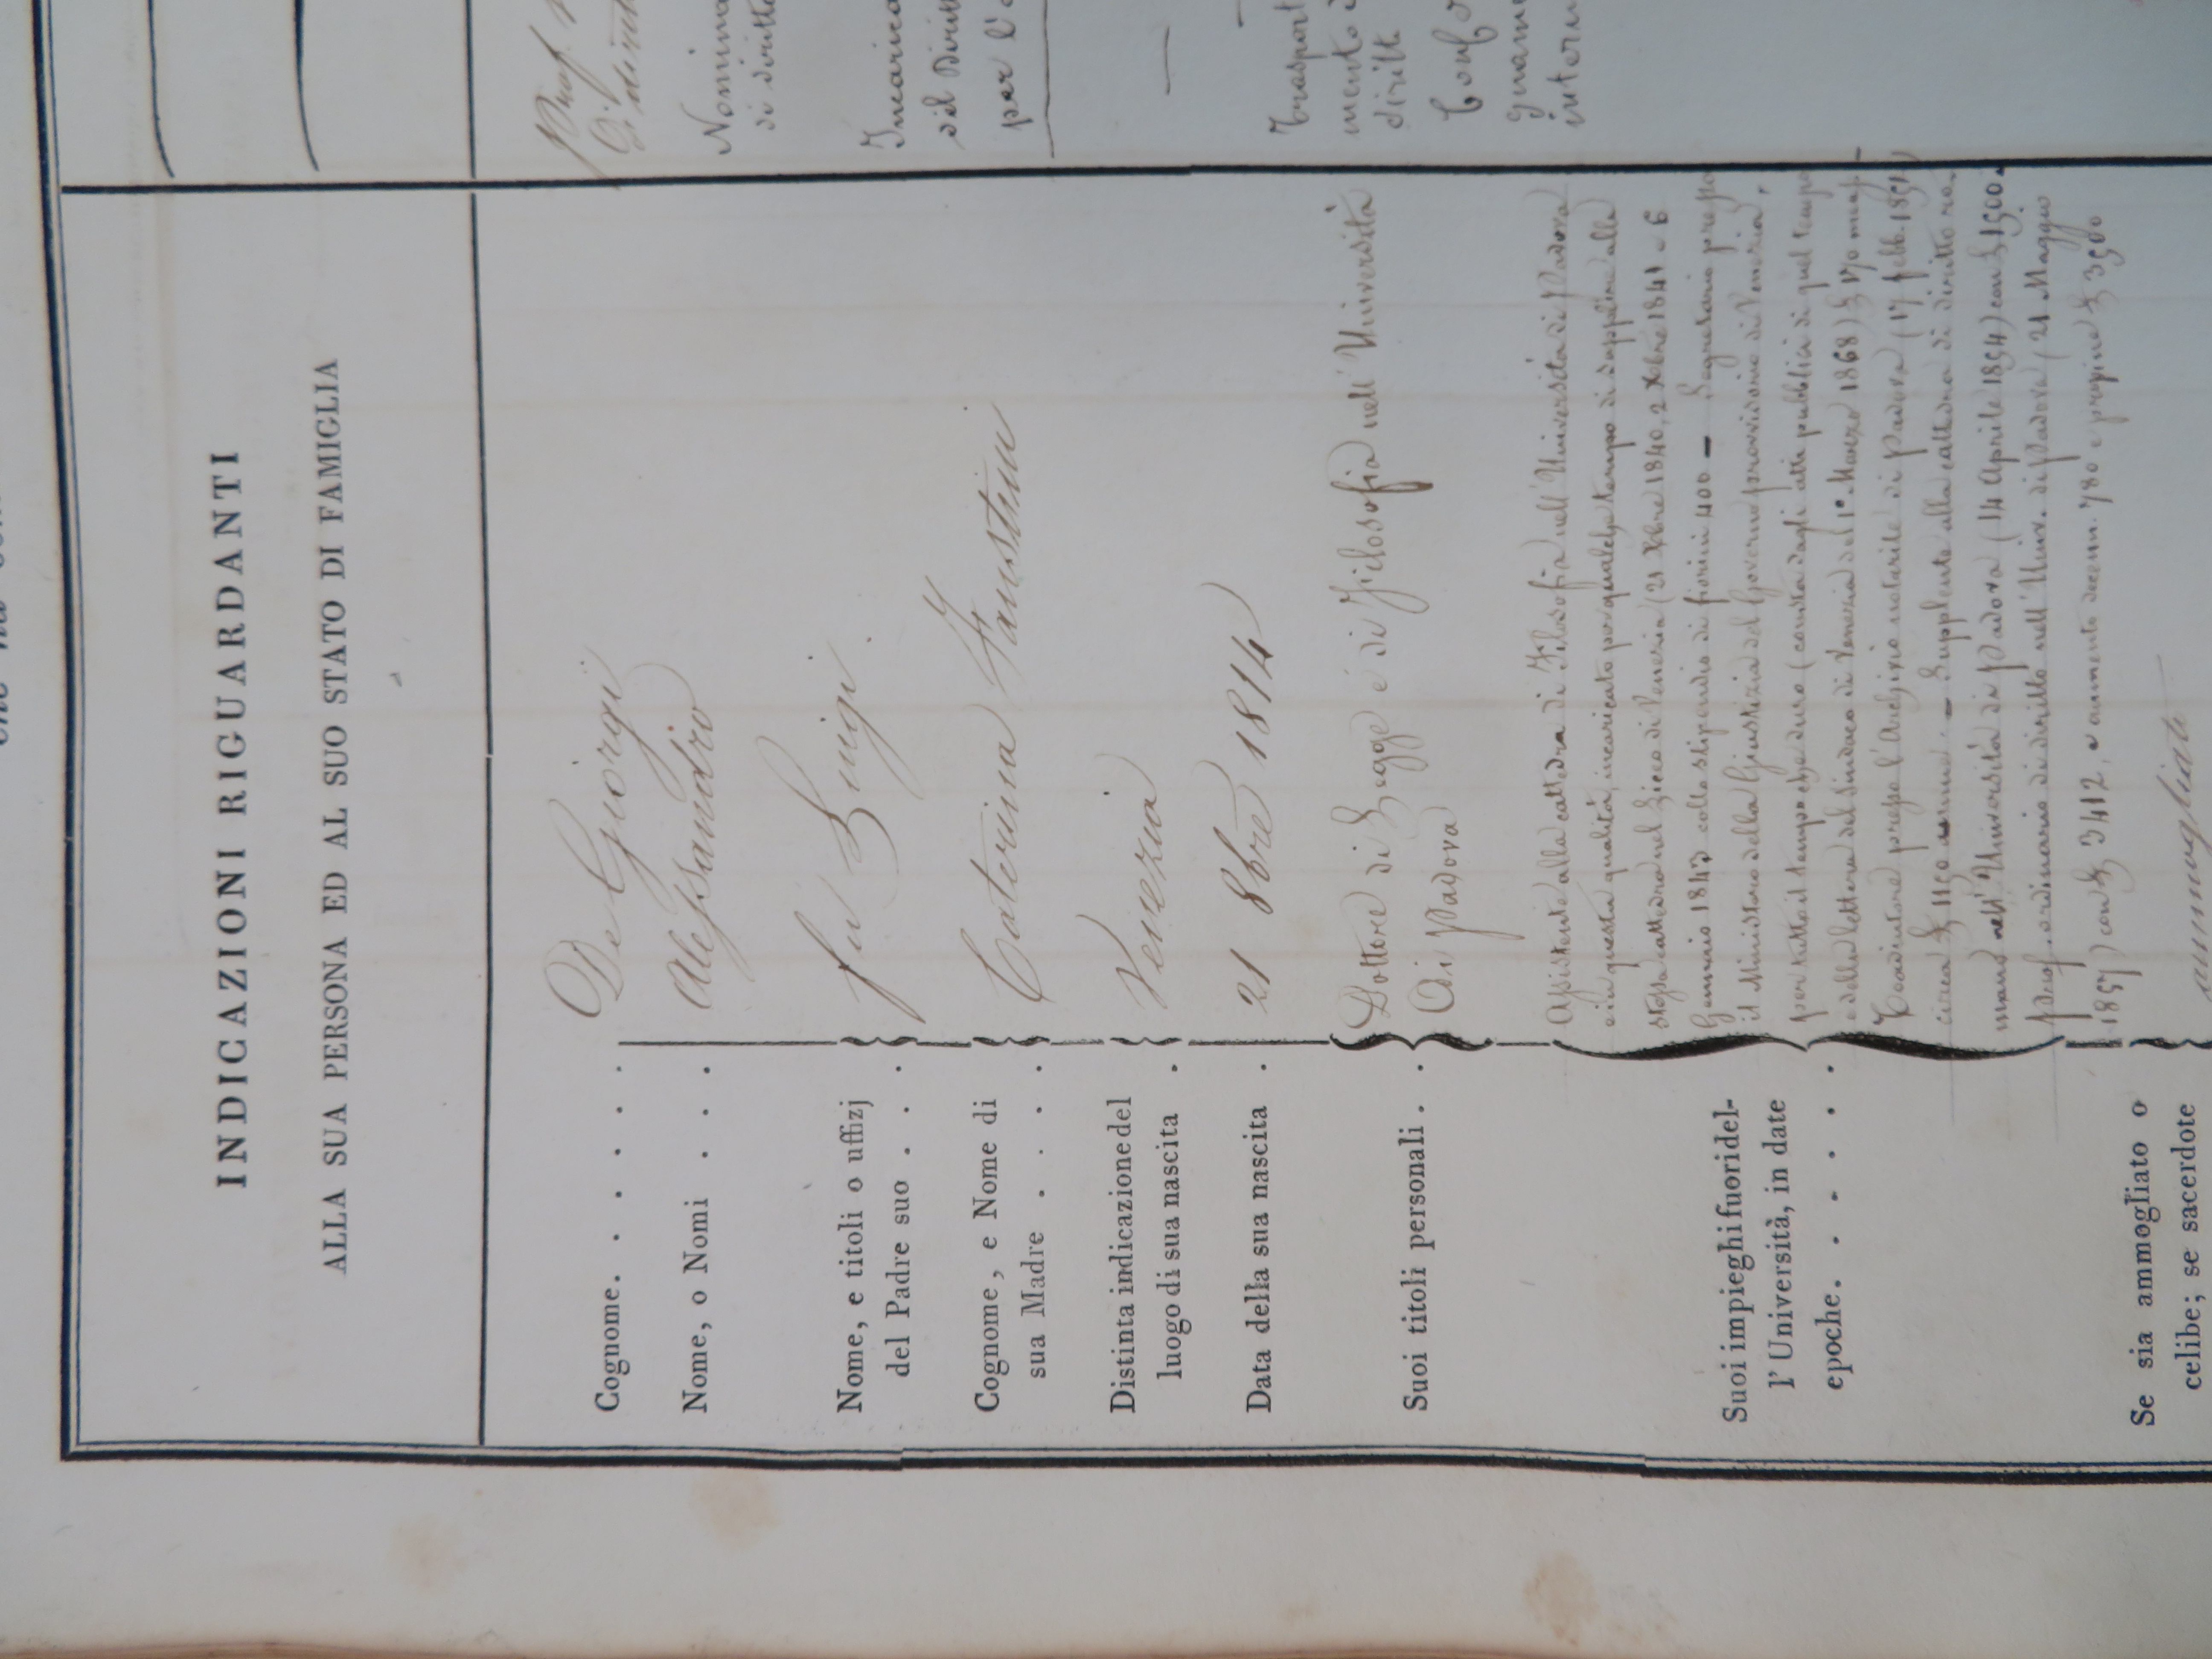 INDICAZIONI RIGUARDANTI
ALLA SUA PERSONA ED AL SUO STATO DI FAMIGLIA
Cognome. . . . . .
De Giorgi
Nome, o Nomi . . .
Alessandro
Nome, e titoli o uffizj
del Padre suo . . .
fu Luigi
Cognome, e Nome di
sua Madre . . . .
Caterina
Distinta indicazione del
luogo di sua nascita .
Venezia
Data della sua nascita .
21 8bre 1814
Suoi titoli personali . .
Dottore di Legge e di Filosofia nell' Università
di Padova
Suoi impieghi fuori del-
l' Università, in date
epoche. . . . . .
Assistente alla cattedra di Filosofia nell' Università di Padova
e in questa qualità, incaricato per qualche tempo di supplire alla
stessa cattedra nel Liceo di Venezia (21 Xbre 1840, 2 Xbre 1841 e 6
Gennaio 1843 collo stipendio di fiorini 400 — Segretario presso
il Ministero della Giustizia del Governo provvisorio di Venezia,
per tutto il tempo che durò (consta dagli atti pubblici di quel tempo
e dalla lettera del sindaco di Venezia del 1° Marzo 1868) £ 170 mens.
Coadiutore presso l'Archivio notarile di Padova (17 febb. 1851)
circa £ 1150 annue. — Supplente alla cattedra di diritto ro-
mano nell' Università di Padova (14 Aprile 1854) con £ 1500.
prof. ordinario di diritto nell' Univ. di Padova (21 Maggio
1857) con £ 3412, e aumento decenn. 780 e propine £ 3500
Se sia ammogliato o
celibe; se sacerdote
ammogliato
Prof.
Nomina
di diritto
Incarica
del Diritt
per l'
—
Trasport
mento
diritt
Conf
intern